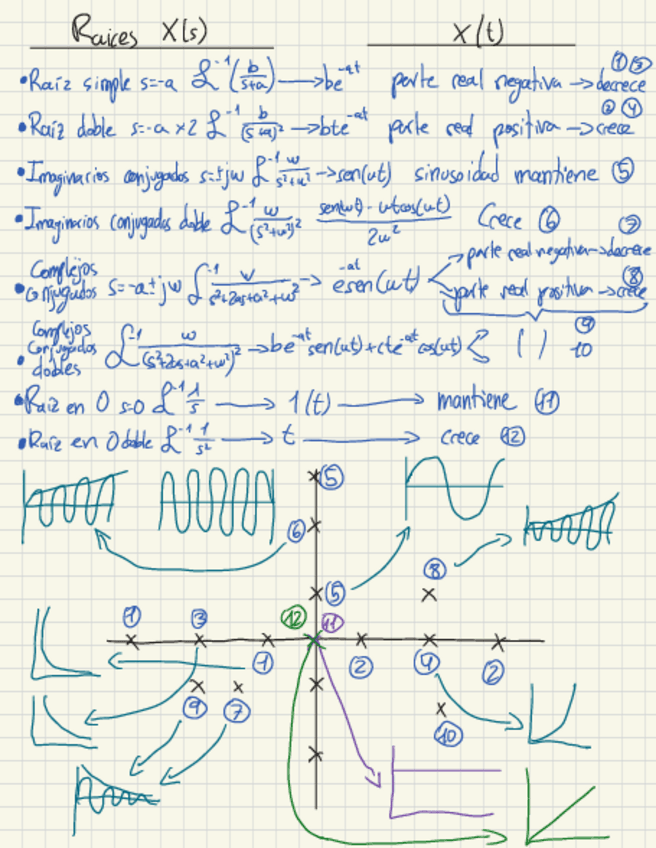 Raices X(s) X(t)
① ③
• Raíz simple s=-a ℒ⁻¹(b/(s+a)) → be^-at parte real negativa → decrece
② ④
• Raíz doble s=-a x2 ℒ⁻¹ b/(s+a)² → bte^-at parte real positiva → crece
• Imaginarios conjugados s=±jw ℒ⁻¹ w/(s²+w²) → sen(wt) sinusoidad mantiene ⑤
• Imaginarios conjugados doble ℒ⁻¹ w/(s²+w²)² (sen(wt) - wtcos(wt))/2w² Crece ⑥ ⑦
parte real negativa → decrece
• Complejos conjugados s=-a±jw ℒ⁻¹ w/(s²+2as+a²+w²) → e^-at sen(wt) ⑧
parte real positiva → crece
• Complejos Conjugados dobles ℒ⁻¹ w/(s²+2as+a²+w²)² → be^-at sen(wt)+cte^-at cos(wt) < ( ) ⑨ 10
• Raiz en 0 s=0 ℒ⁻¹ 1/s → 1(t) → mantiene ⑪
• Raiz en 0 doble ℒ⁻¹ 1/s² → t → crece ⑫
⑤
⑥
⑧
⑤
① ③ ⑫ ⑪
① ② ④ ②
⑨ ⑦
⑩